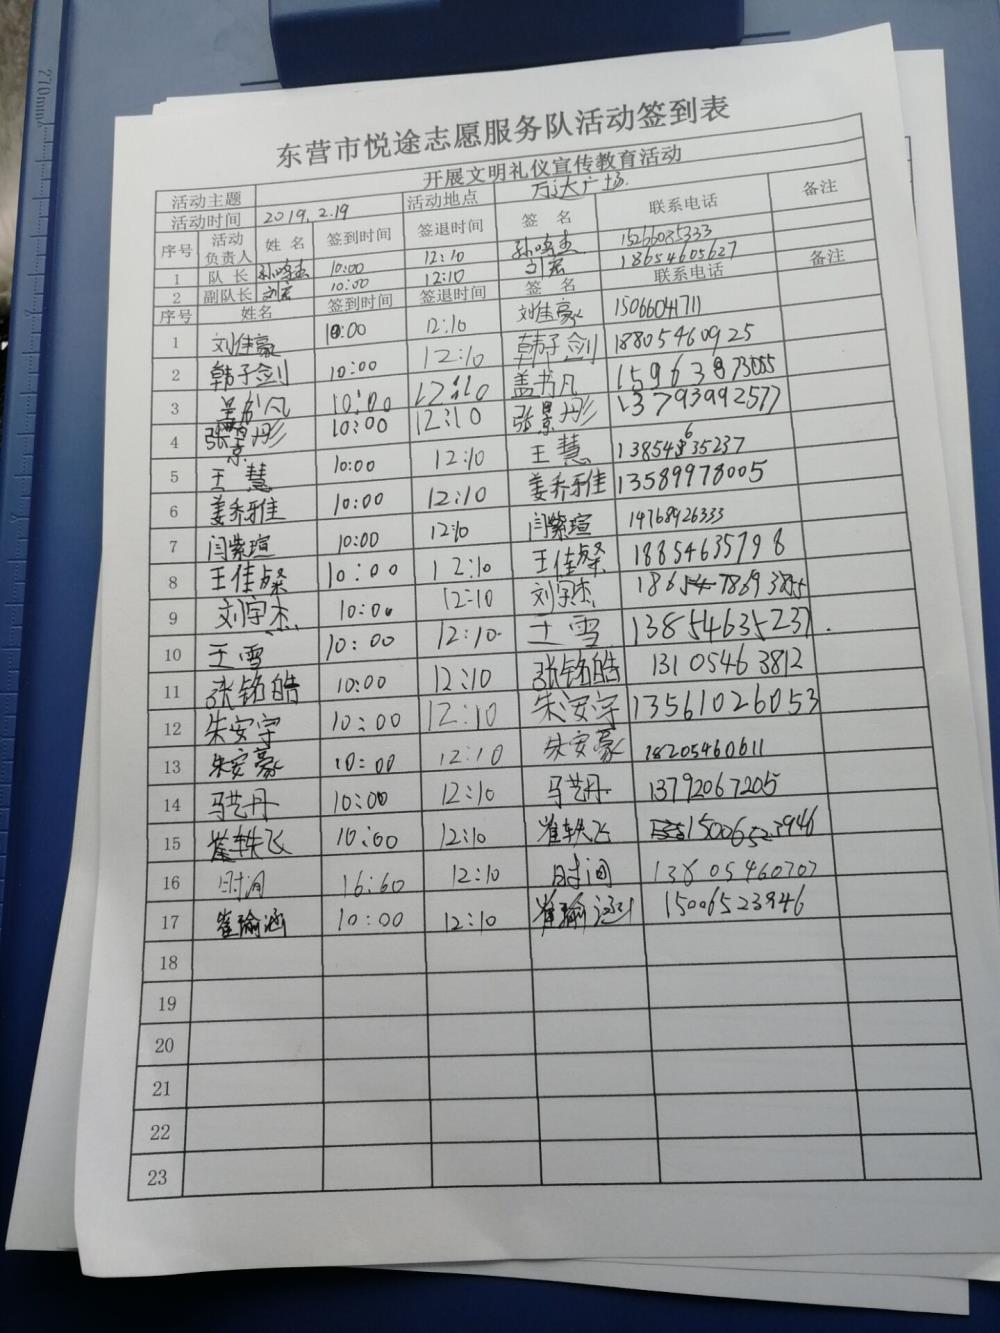 270mm
东营市悦途志愿服务队活动签到表
活动主题 开展文明礼仪宣传教育活动
活动时间 2019.2.19 活动地点 万达广场.
序号 活动负责人 姓名 签到时间 签退时间 签名 联系电话 备注
1 队长 10:00 12:10
2 副队长 刘宏 10:00 12:10 刘宏 18654605627
序号 姓名 签到时间 签退时间 签名 联系电话 备注
1 刘佳豪 10:00 12:10 刘佳豪 15066041711
2 韩子剑 10:00 12:10 韩子剑 18805460925
3 盖书凡 10:00 12:10 盖书凡
4 张景彤 10:00 12:10 张景彤 13793992577
5 王慧 10:00 12:10 王慧
6 姜乔雅 10:00 12:10 姜乔雅 13589978005
7 闫紫瑄 10:00 12:10 闫紫瑄 14768926333
8 王佳粲 10:00 12:10 王佳粲 18854635798
9 刘宇杰 10:00 12:10 刘宇杰
10 王雪 10:00 12:10. 王雪 13854635237.
11 张铭皓 10:00 12:10 张铭皓 13105463812
12 朱安宇 10:00 12:10 朱安宇 13561026053
13 朱安豪 10:00 12:10 朱安豪 18205460611
14 马艺丹 10:00 12:10 马艺丹 13792067205
15 崔轶飞 10:00 12:10 崔轶飞 15006523946
16 时间 16:60 12:10 时间 13805460707
17 崔瑜涵 10:00 12:10 崔瑜涵 15006523946
18
19
20
21
22
23